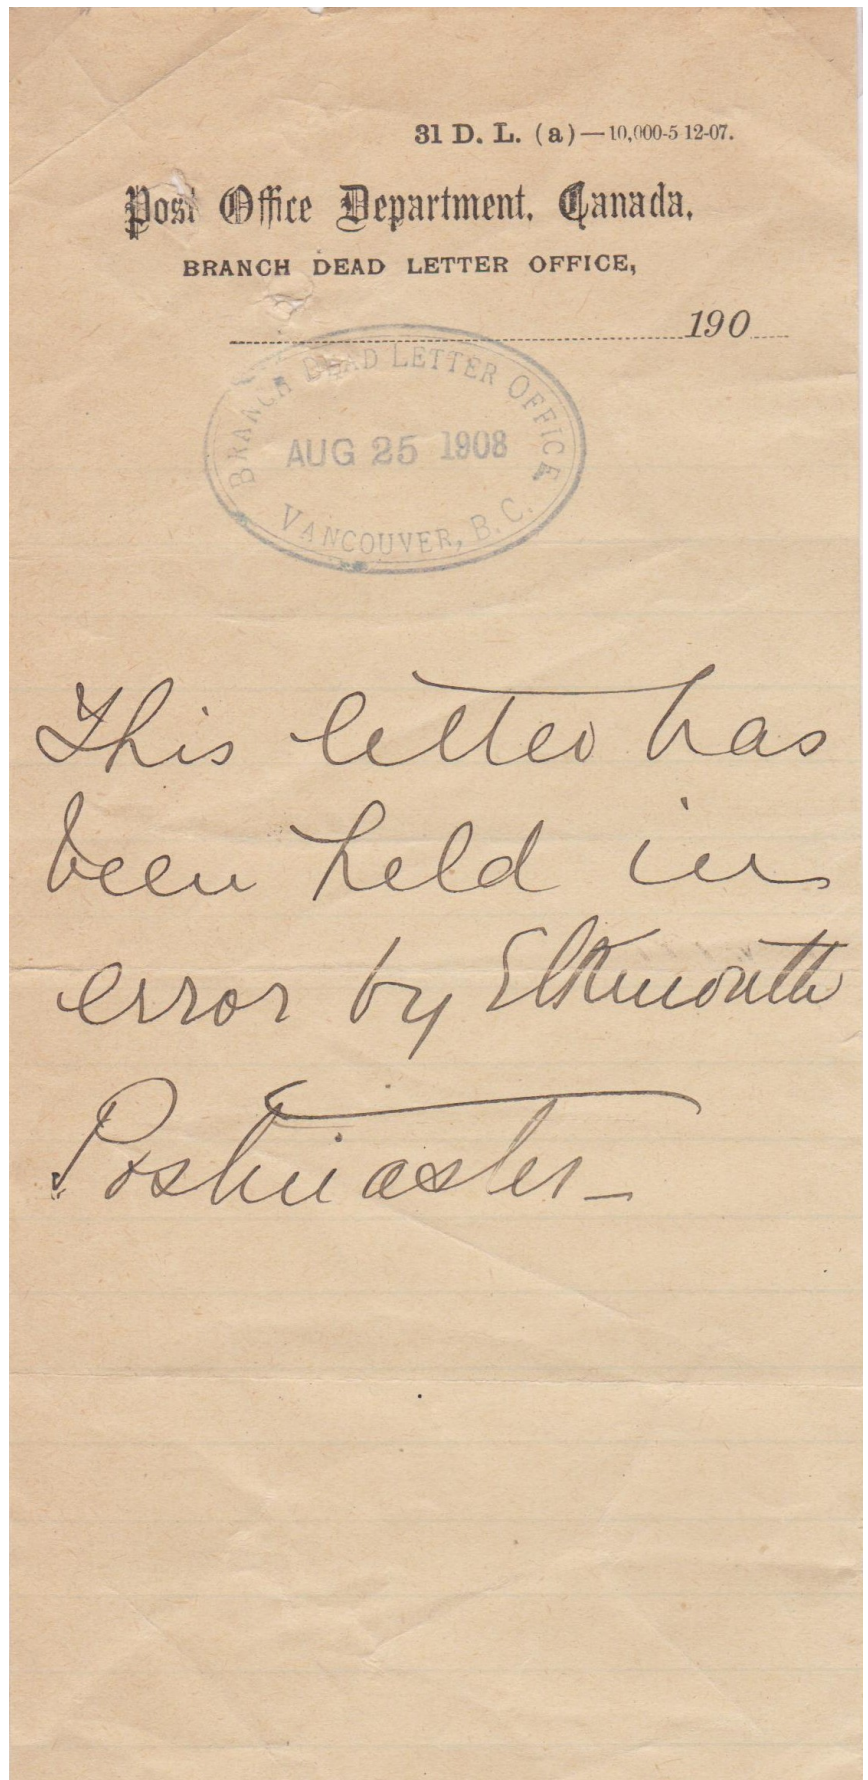 31 D. L. (a)—10,000-5 12-07.
Post Office Department, Canada,
BRANCH DEAD LETTER OFFICE,
190
BRANCH DEAD LETTER OFFICE
AUG 25 1908
VANCOUVER, B.C.
This letter has
been held in
error by Elkmouth
Postmaster—